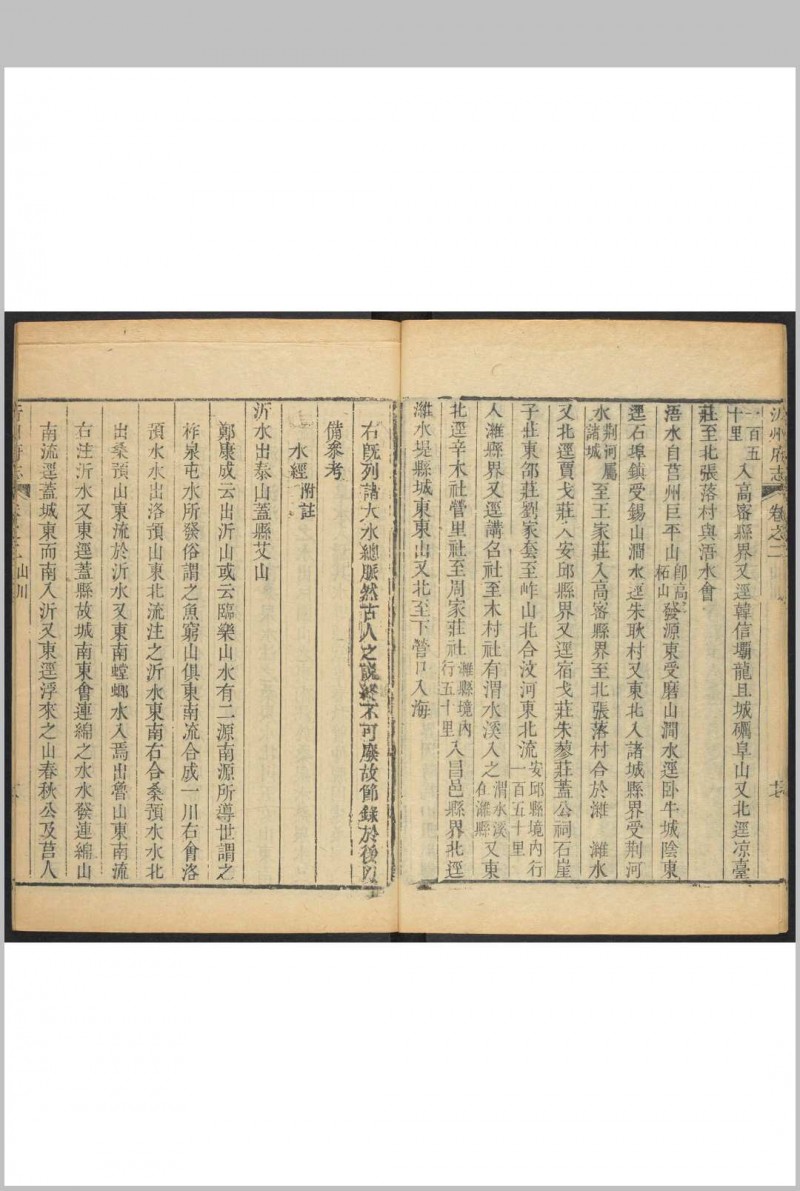 沂州府志 卷之二
一百五十里入高密縣界又逕韓信壩龍且城礪阜山又北逕凉臺
莊至北張落村與浯水會
浯水自莒州巨平山卽高柘山發源東受磨山澗水逕卧牛城陰東
逕石埠鎮受錫山澗水逕朱耿村又東北入諸城縣界受荆河
水荆河屬諸城至王家莊入高密縣界至北張落村合於濰 濰水
又北逕賈戈莊入安邱縣界又逕宿戈莊朱蓼莊蓋公祠石崖
子莊東部莊劉家套至岞山北合汶河東北流安邱縣境內行一百五十里
入濰縣界又逕講名社至木村社有渭水溪入之渭水溪在濰縣又東
北逕辛木社營里社至周家莊社濰縣境內行五十里入昌邑縣界北逕
濰水堤縣城東東山又北至下營口入海
右旣列諸大水總脈然古人之說終不可廢故節錄於後以
備參考
水經附註
沂水出泰山蓋縣艾山
鄭康成云出沂山或云臨樂山水有二源南源所導世謂之
柞泉屯水所發俗謂之魚窮山俱東南流合成一川右會洛
預水水出洛預山東北流注之沂水東南右合桑預水水北
出桑預山東流於沂水又東南螳螂水入焉出魯山東南流
右注沂水又東逕蓋縣故城南東會連綿之水水發連綿山
南流逕蓋城東而南入沂又東逕浮來之山春秋公及莒人
山川